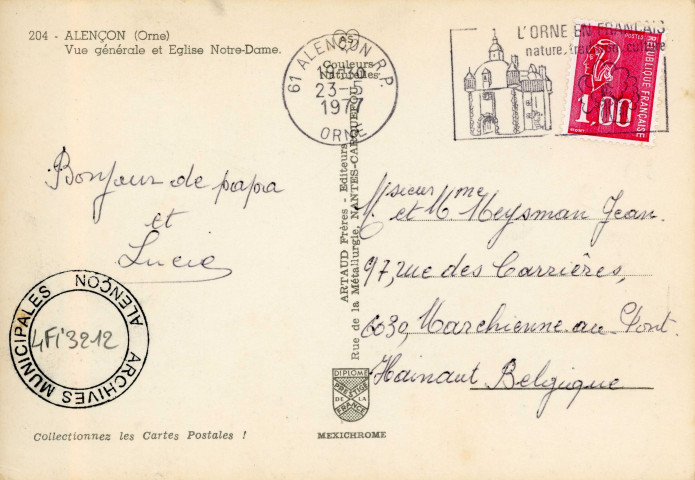 204 - ALENÇON (Orne)
Vue générale et Eglise Notre-Dame.
AS
Couleurs
Naturelles
61 ALENÇON R.P.
23-5
1977
ORNE
L'ORNE EN FRANÇAIS
nature, tradition, culture
POSTES
RÉPUBLIQUE FRANÇAISE
1,00
Bonjour de papa
et
Lucie
ARTAUD Frères - Editeurs
Rue de la Métallurgie, NANTES-CARQUEFOU
Msieur et Mme Meysman Jean.
97, rue des Carrières,
6030, Marchienne au Pont.
Hainaut Belgique
ARCHIVES MUNICIPALES ALENÇON
4Fi3212
DIPLOME
PRESTIGE
DE LA
FRANCE
Collectionnez les Cartes Postales !
MEXICHROME